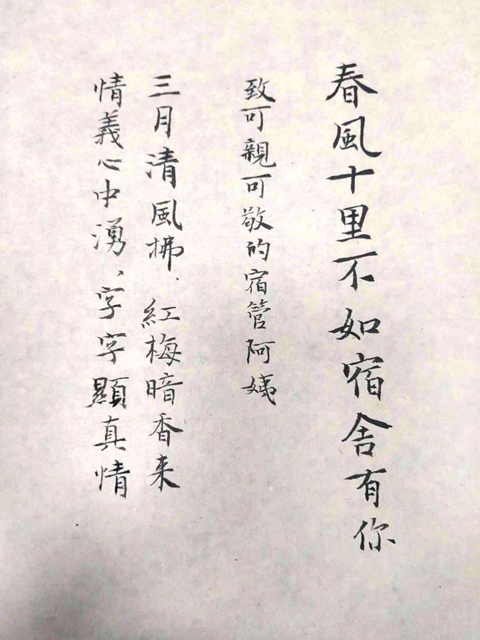 春風十里不如宿舍有你
致可親可敬的宿管阿姨
三月清風拂、紅梅暗香来
情義心中湧、字字顯真情